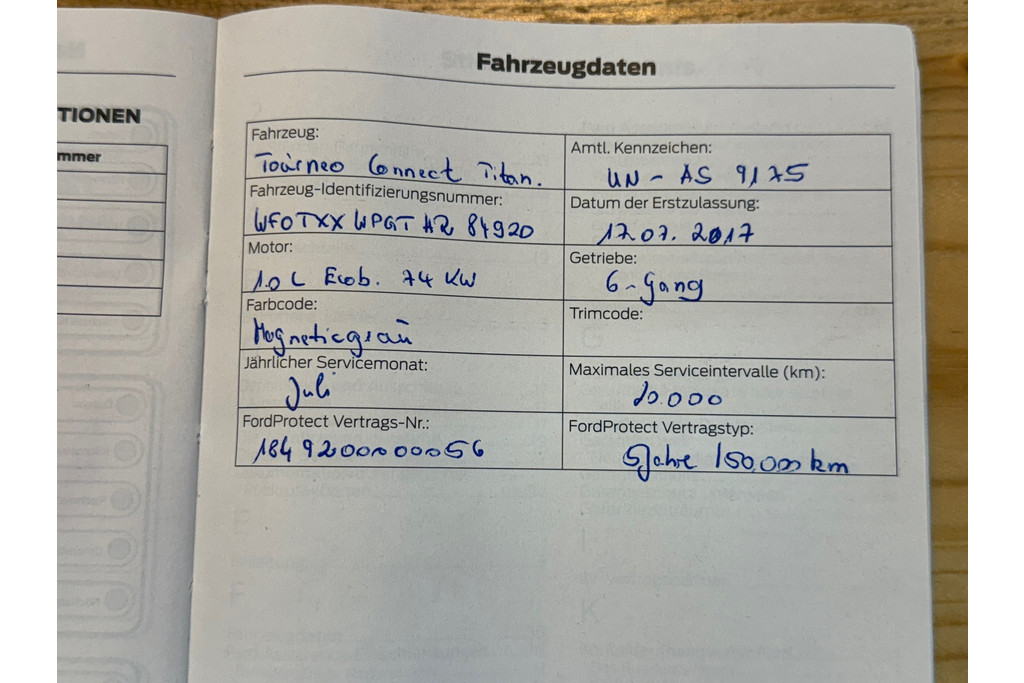 TIONEN
mmer
Fahrzeugdaten
Fahrzeug:
Tourneo Connect Titan.
Amtl. Kennzeichen:
UN - AS 9175
Fahrzeug-Identifizierungsnummer:
WF0TXX WPGT HR 84920
Datum der Erstzulassung:
17.07.2017
Motor:
1.0 L Ecob. 74 KW
Getriebe:
6-Gang
Farbcode:
Magneticgrau
Trimcode:
Jährlicher Servicemonat:
Juli
Maximales Serviceintervalle (km):
20.000
FordProtect Vertrags-Nr.:
FordProtect Vertragstyp:
5 Jahre 150.000 km